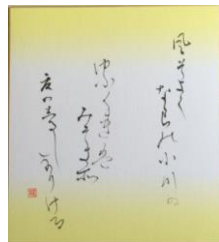 風そよく
ならの小川の
ゆふくれは
みそきそ
夏のしるしなりける